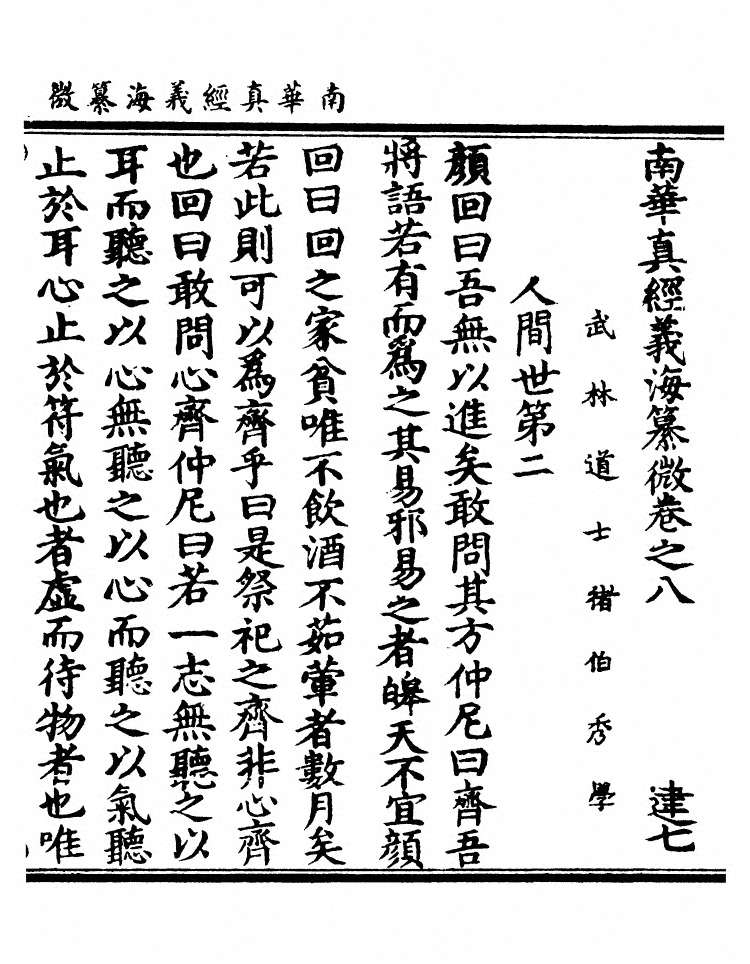 南華真經義海纂微
南華真經義海纂微卷之八 建七
武林道士褚伯秀學
人間世第二
顏回曰吾無以進矣敢問其方仲尼曰齊吾
將語若有而為之其易邪易之者皞天不宜顏
回曰回之家貧唯不飲酒不茹葷者數月矣
若此則可以為齊乎曰是祭祀之齊非心齊
也回曰敢問心齊仲尼曰若一志無聽之以
耳而聽之以心無聽之以心而聽之以氣聽
止於耳心止於符氣也者虛而待物者也唯